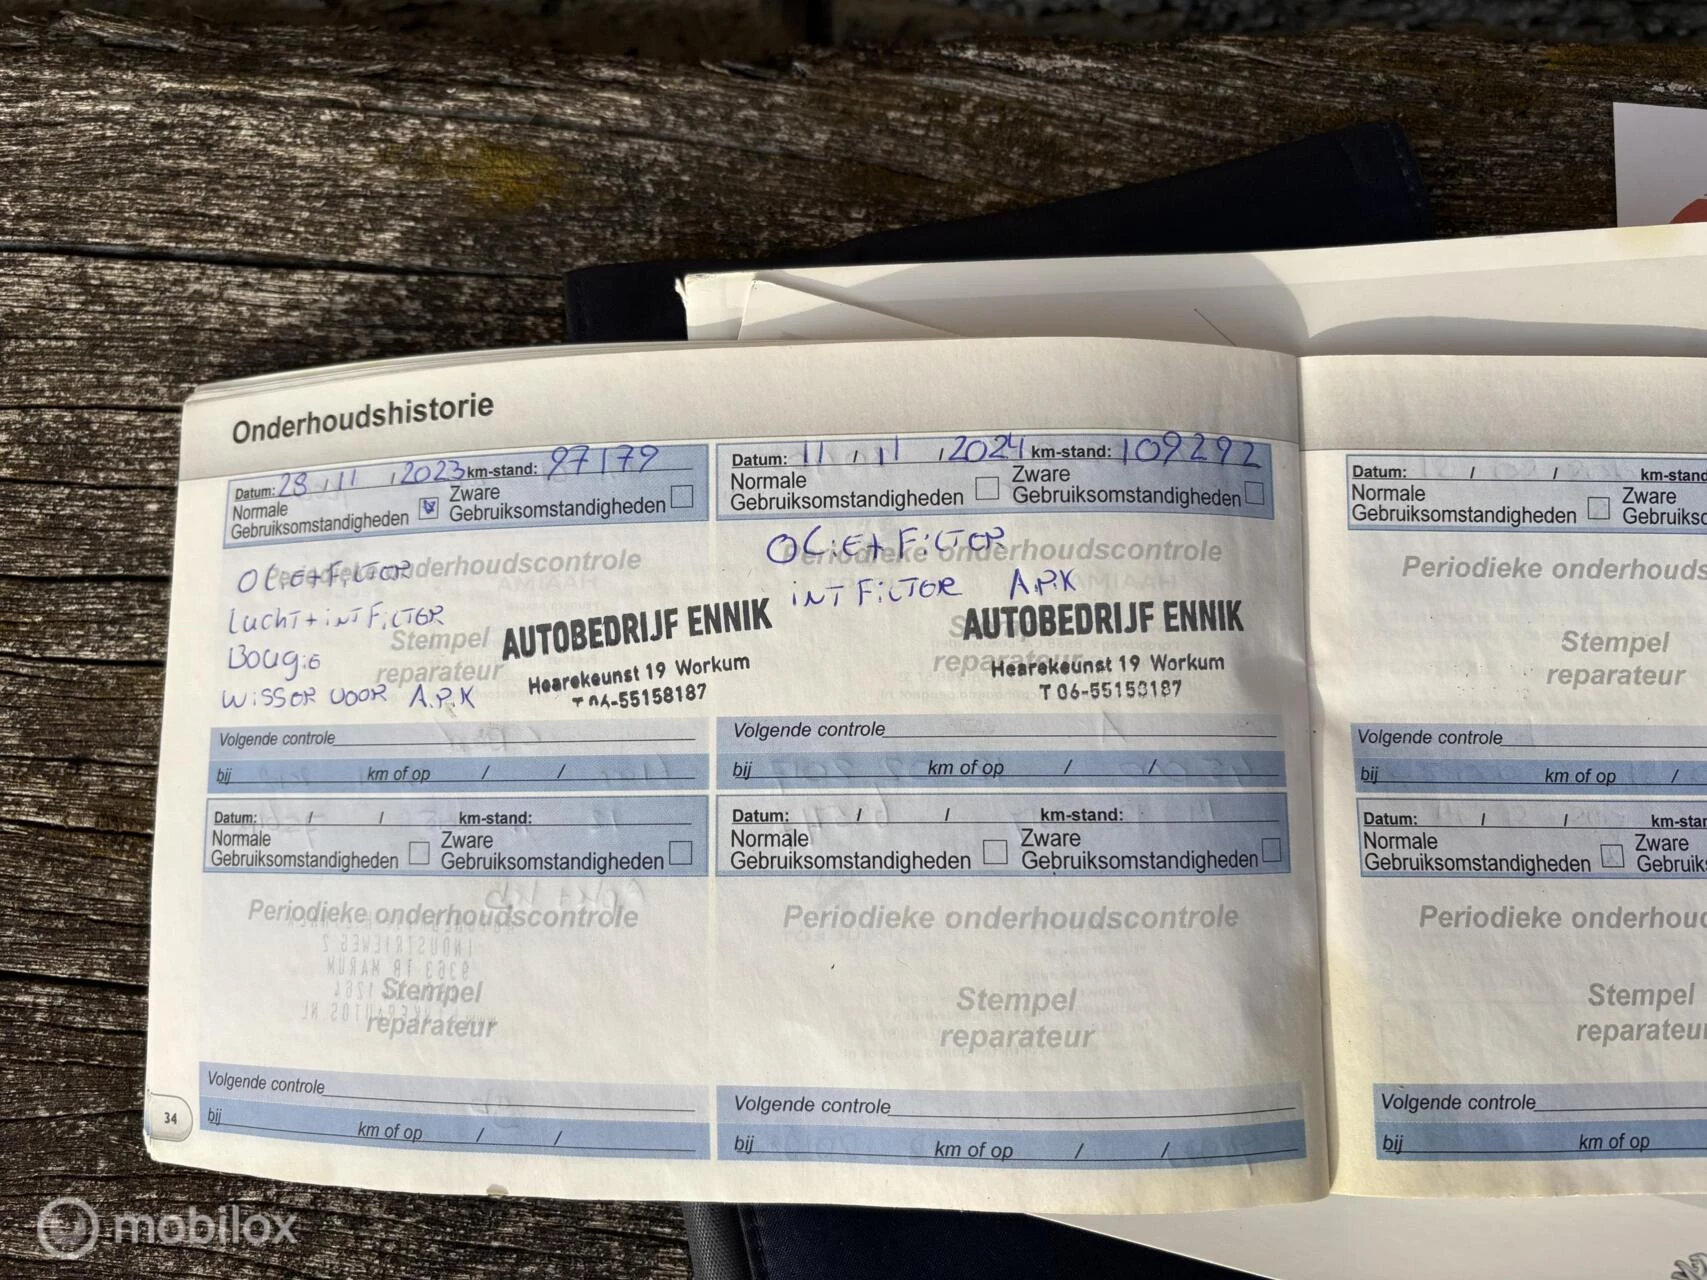 Onderhoudshistorie
Datum: 28 / 11 / 2023 km-stand: 97179
Normale Gebruiksomstandigheden
Zware Gebruiksomstandigheden
Periodieke onderhoudscontrole
OLie+FiLTOR
Lucht+inTFiLTOR
Bougie
WiSSOR VOOR A.P.K
Stempel
reparateur
AUTOBEDRIJF ENNIK
Hearekeunst 19 Workum
T 06-55158187
Volgende controle
bij km of op / /
Datum: 11 / 11 / 2024 km-stand: 109292
Normale Gebruiksomstandigheden
Zware Gebruiksomstandigheden
Periodieke onderhoudscontrole
OLiE+ FiLTOR
iNT FiLTOR A.P.K
Stempel
reparateur
AUTOBEDRIJF ENNIK
Hearekeunst 19 Workum
T 06-55158187
Volgende controle
bij km of op / /
Datum: / / km-stand:
Normale Gebruiksomstandigheden
Zware Gebruiksomstandigheden
Periodieke onderhoudscontrole
Stempel
reparateur
Volgende controle
bij km of op / /
Datum: / / km-stand:
Normale Gebruiksomstandigheden
Zware Gebruiksomstandigheden
Periodieke onderhoudscontrole
Stempel
reparateur
Volgende controle
bij km of op / /
34
Datum: / / km-stand
Normale Gebruiksomstandigheden
Zware
Gebruiksc
Periodieke onderhouds
Stempel
reparateur
Volgende controle
bij km of op /
Datum: / / km-star
Normale Gebruiksomstandigheden
Zware
Gebruik
Periodieke onderhoud
Stempel
reparateu
Volgende controle
bij km of op
mobilox